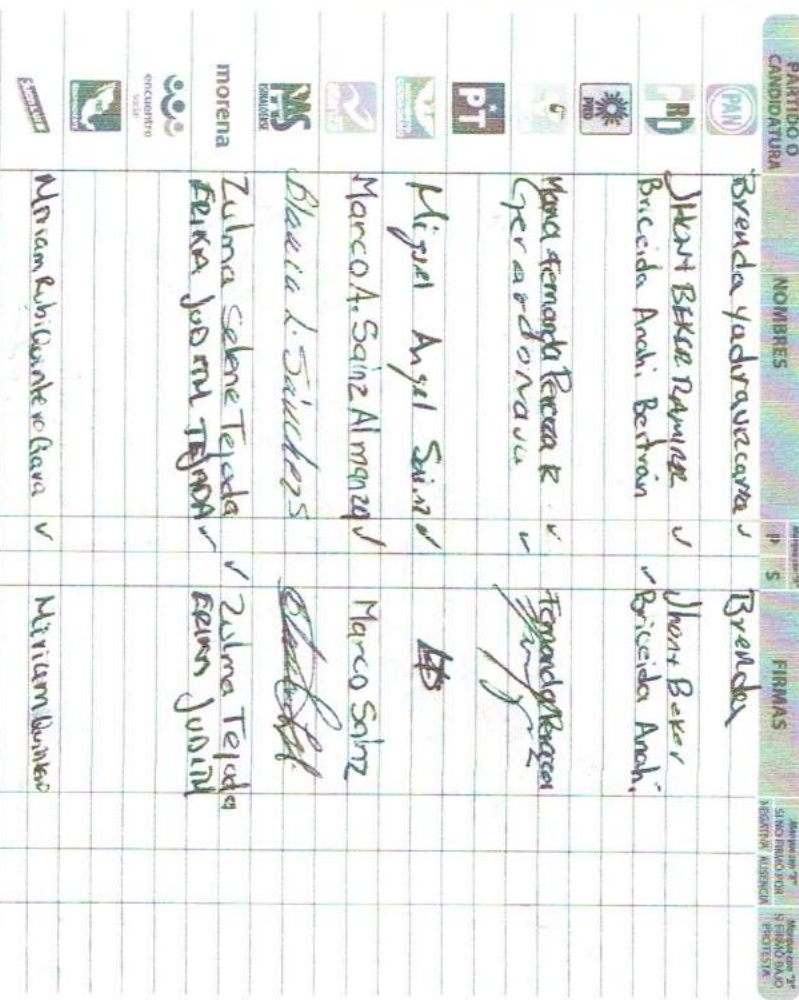 PARTIDO O CANDIDATURA
NOMBRES
Marque con "X"
P S
FIRMAS
Marque con "X" SI NO FIRMÓ POR NEGATIVA AUSENCIA
Marque con "X" SI FIRMÓ BAJO PROTESTA
PAN
Brenda Brenda
PRD
Jhont Beker Ramirez ✓ Jhont Beker
Briceida Anahi Beltrán ✓ Briceida Anahi
Maria Fernanda ✓ Fernanda
Gerardo Nava ✓
PT
Miguel Angel Sainz ✓
Marco A. Sainz Almanza ✓ Marco Sainz
PAS
SINALOENSE
Blanca L. Sánchez
morena
Zulma Selene Tejada ✓ Zulma Tejada
ERIKA JUDITH TEJADA ✓ ERIKA JUDITH
encuentro
social
Miriam Rubi Quintero ✓ Miriam Quintero